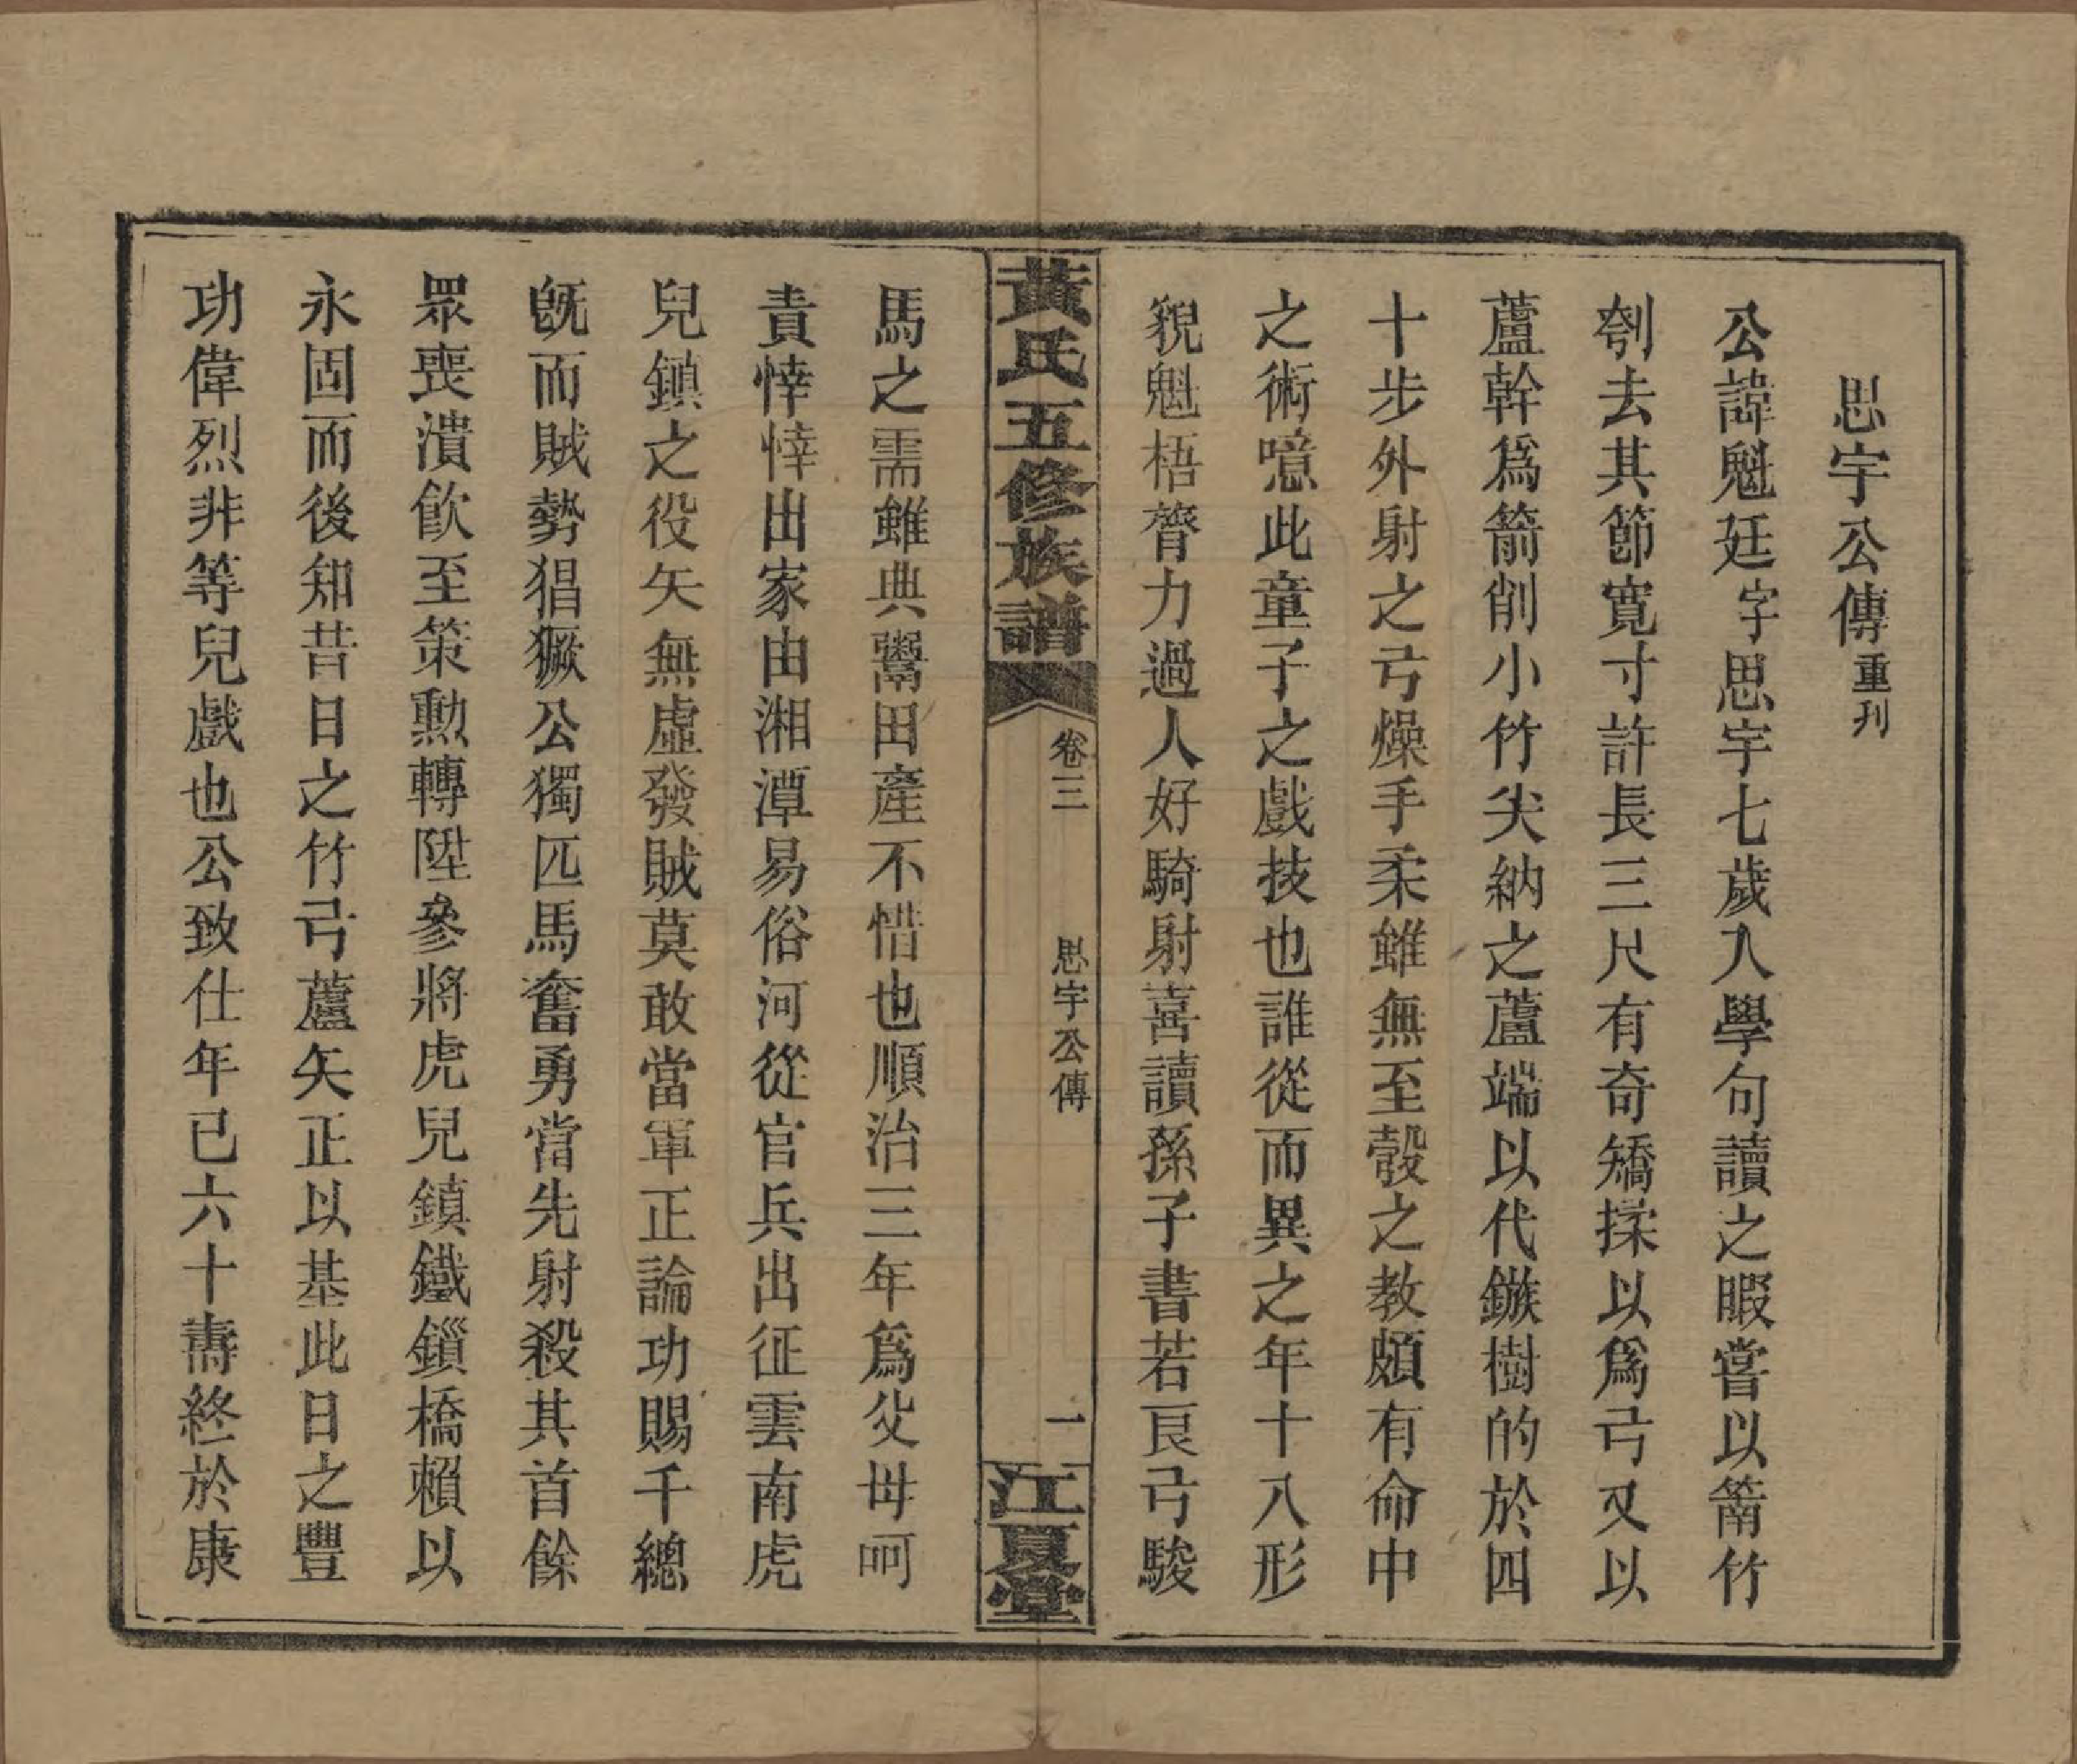 思宇公傳重刊
公諱魁廷字思宇七歲入學句讀之暇嘗以箭竹
刳去其節寬寸許長三尺有奇矯揉以爲弓又以
蘆幹爲箭削小竹尖納之蘆端以代鏃樹的於四
十步外射之弓燥手柔雖無至彀之教頗有命中
之術噫此童子之戲技也誰從而異之年十八形
貌魁梧膂力過人好騎射喜讀孫子書若良弓駿
黃氏五修族譜 卷三 思宇公傳 一 江夏堂
馬之需雖典鬻田產不惜也順治三年爲父母呵
責悻悻出家由湘潭易俗河從官兵出征雲南虎
兒鎮之役矢無虛發賊莫敢當軍正論功賜千總
旣而賊勢猖獗公獨匹馬奮勇當先射殺其首餘
眾喪潰飲至策勳轉陞參將虎兒鎮鐵鎖橋賴以
永固而後知昔日之竹弓蘆矢正以基此日之豐
功偉烈非等兒戲也公致仕年已六十壽終於康